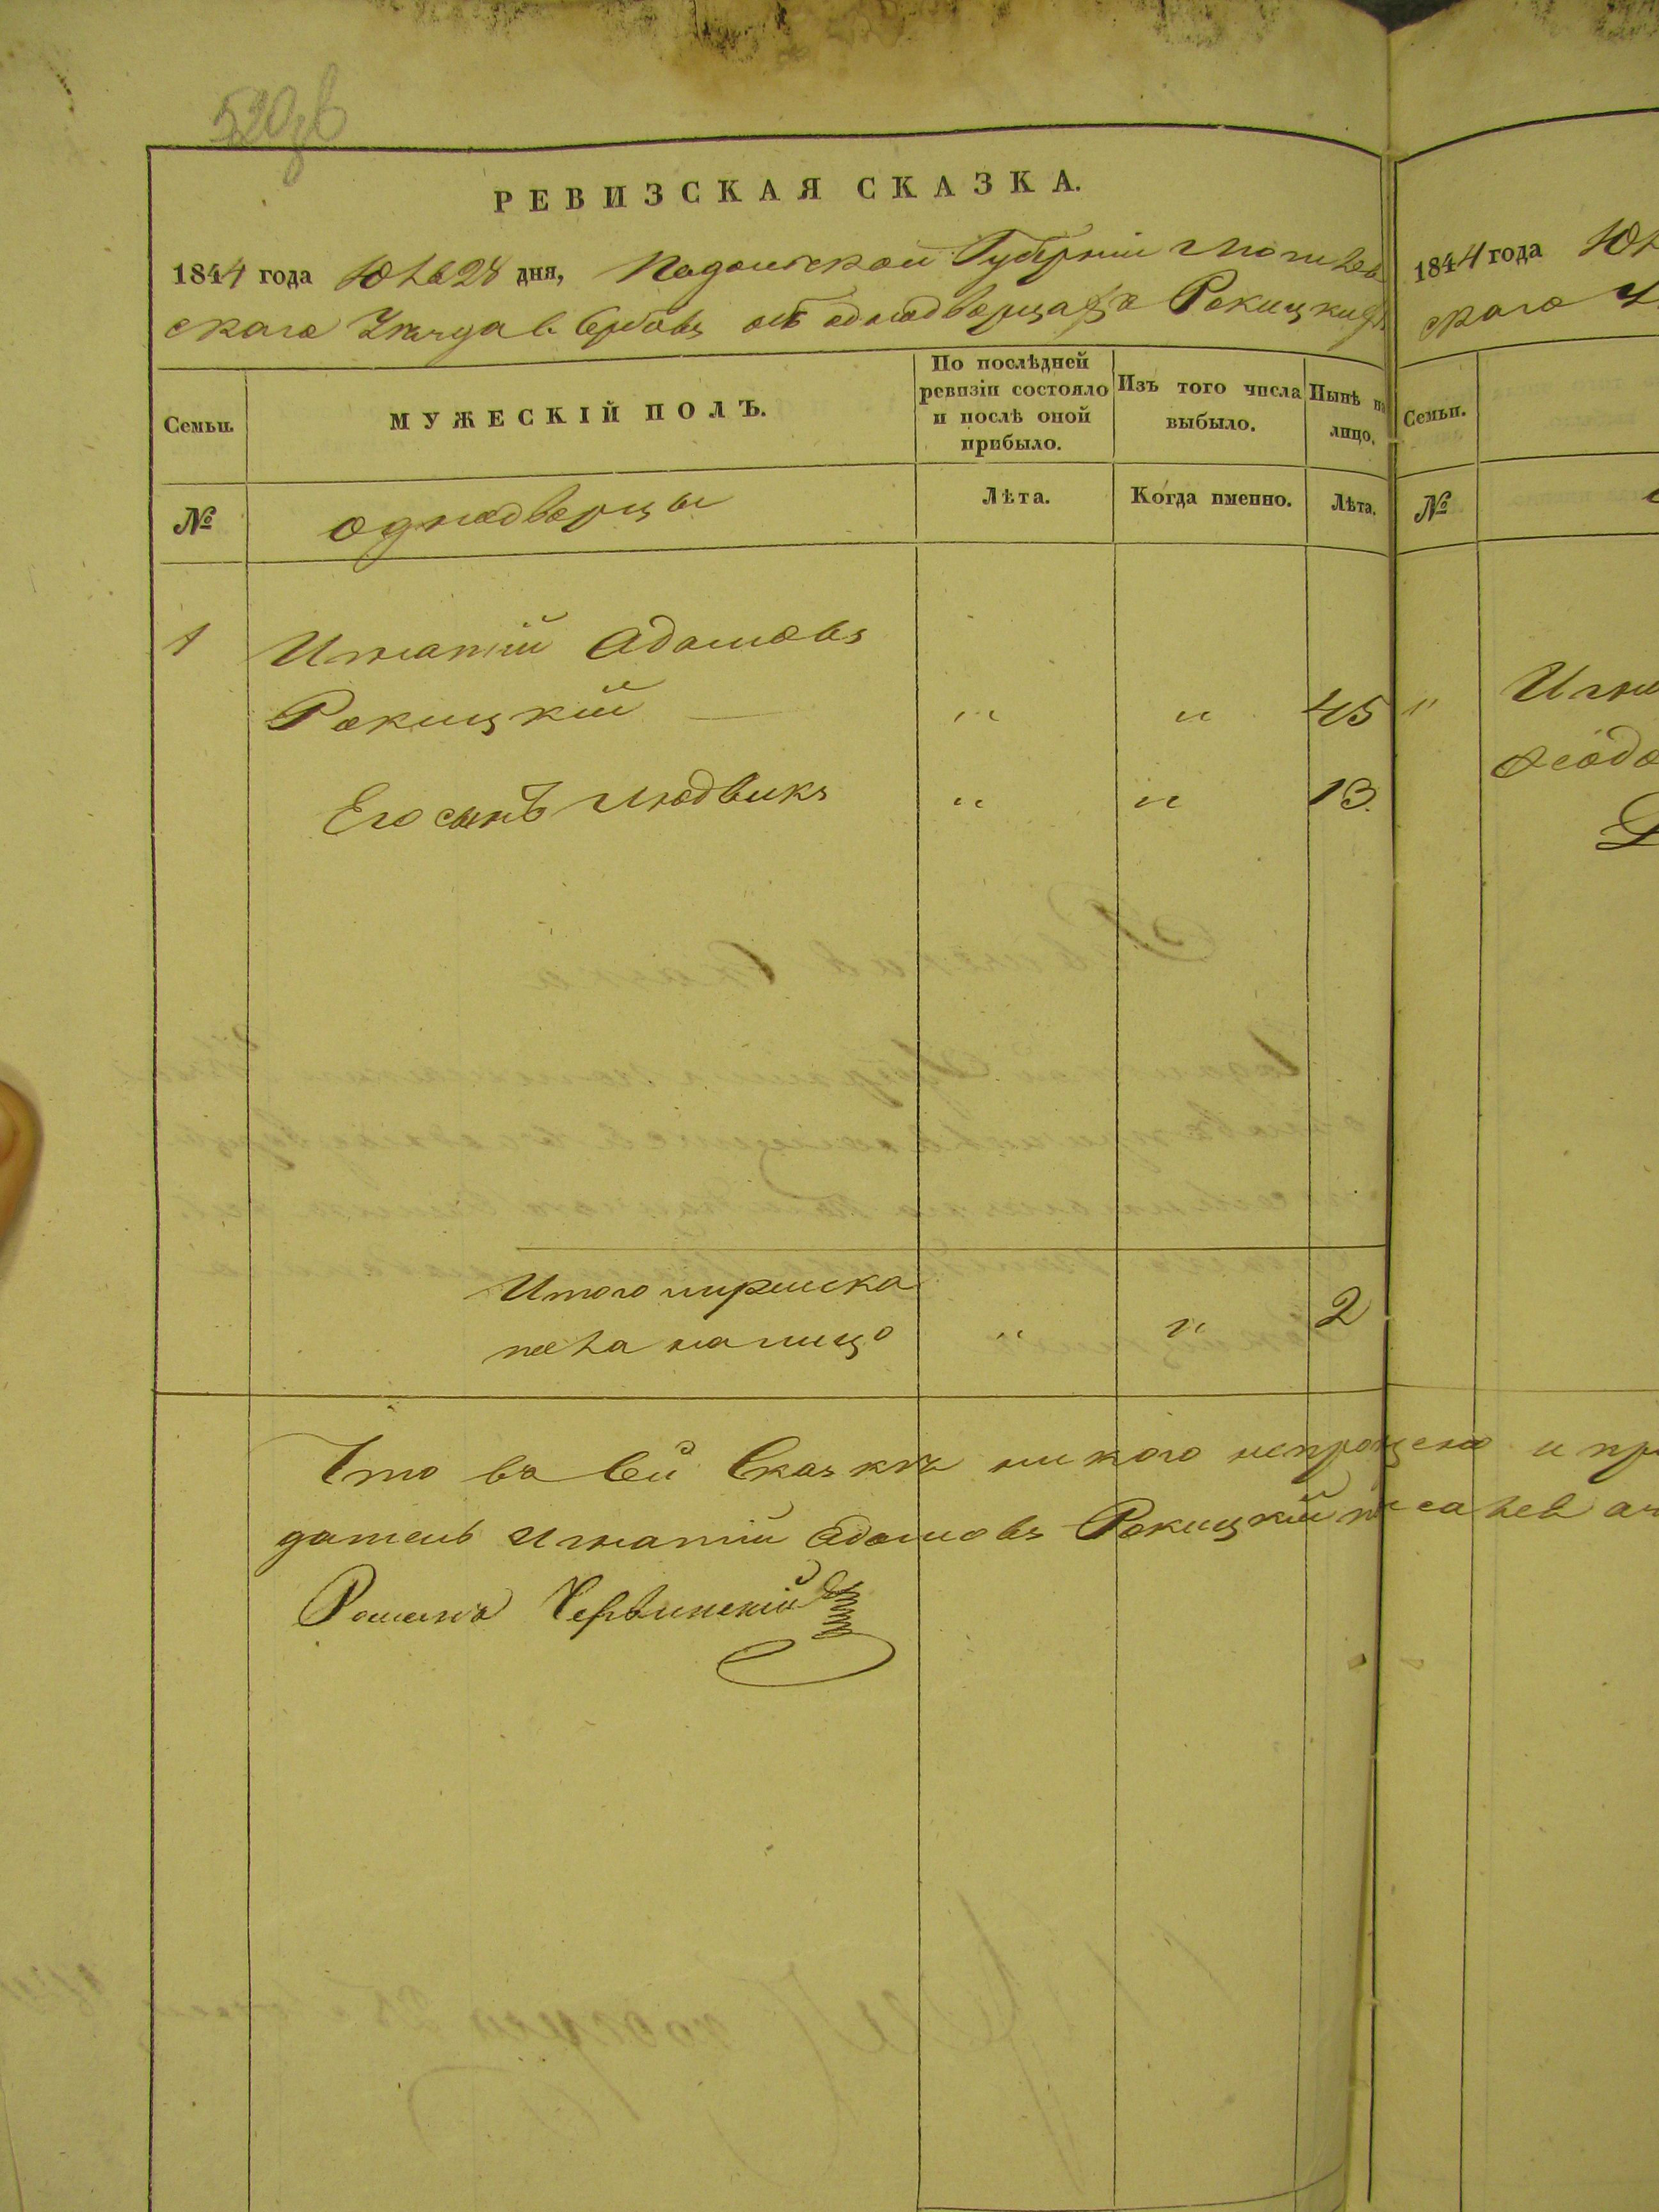 520зв
РЕВИЗСКАЯ СКАЗКА.
1844 года Юля 28 дня, Подольской Губерніи Могилев
скаго Уѣзда объ однодворцахъ Рокицкихъ
Семьи.
МУЖЕСКІЙ ПОЛЪ.
По послѣдней ревизіи состояло и послѣ оной прибыло.
Изъ того числа выбыло.
Нынѣ на лицо.
№
однодворцы
Лѣта.
Когда именно.
Лѣта.
1 Игнатій Адамовъ
Рокицкій — " " 45
Его сынъ Людвикъ " " 13.
Итого мужеска
пола на лицо " " 2
Что въ сей Сказкѣ никого и пр
датель Игнатій Адамовъ Рокицкій
Романъ Червинскій
1844 года Юл
скаго У
Семьи.
№
" Игна
Ѳеодо